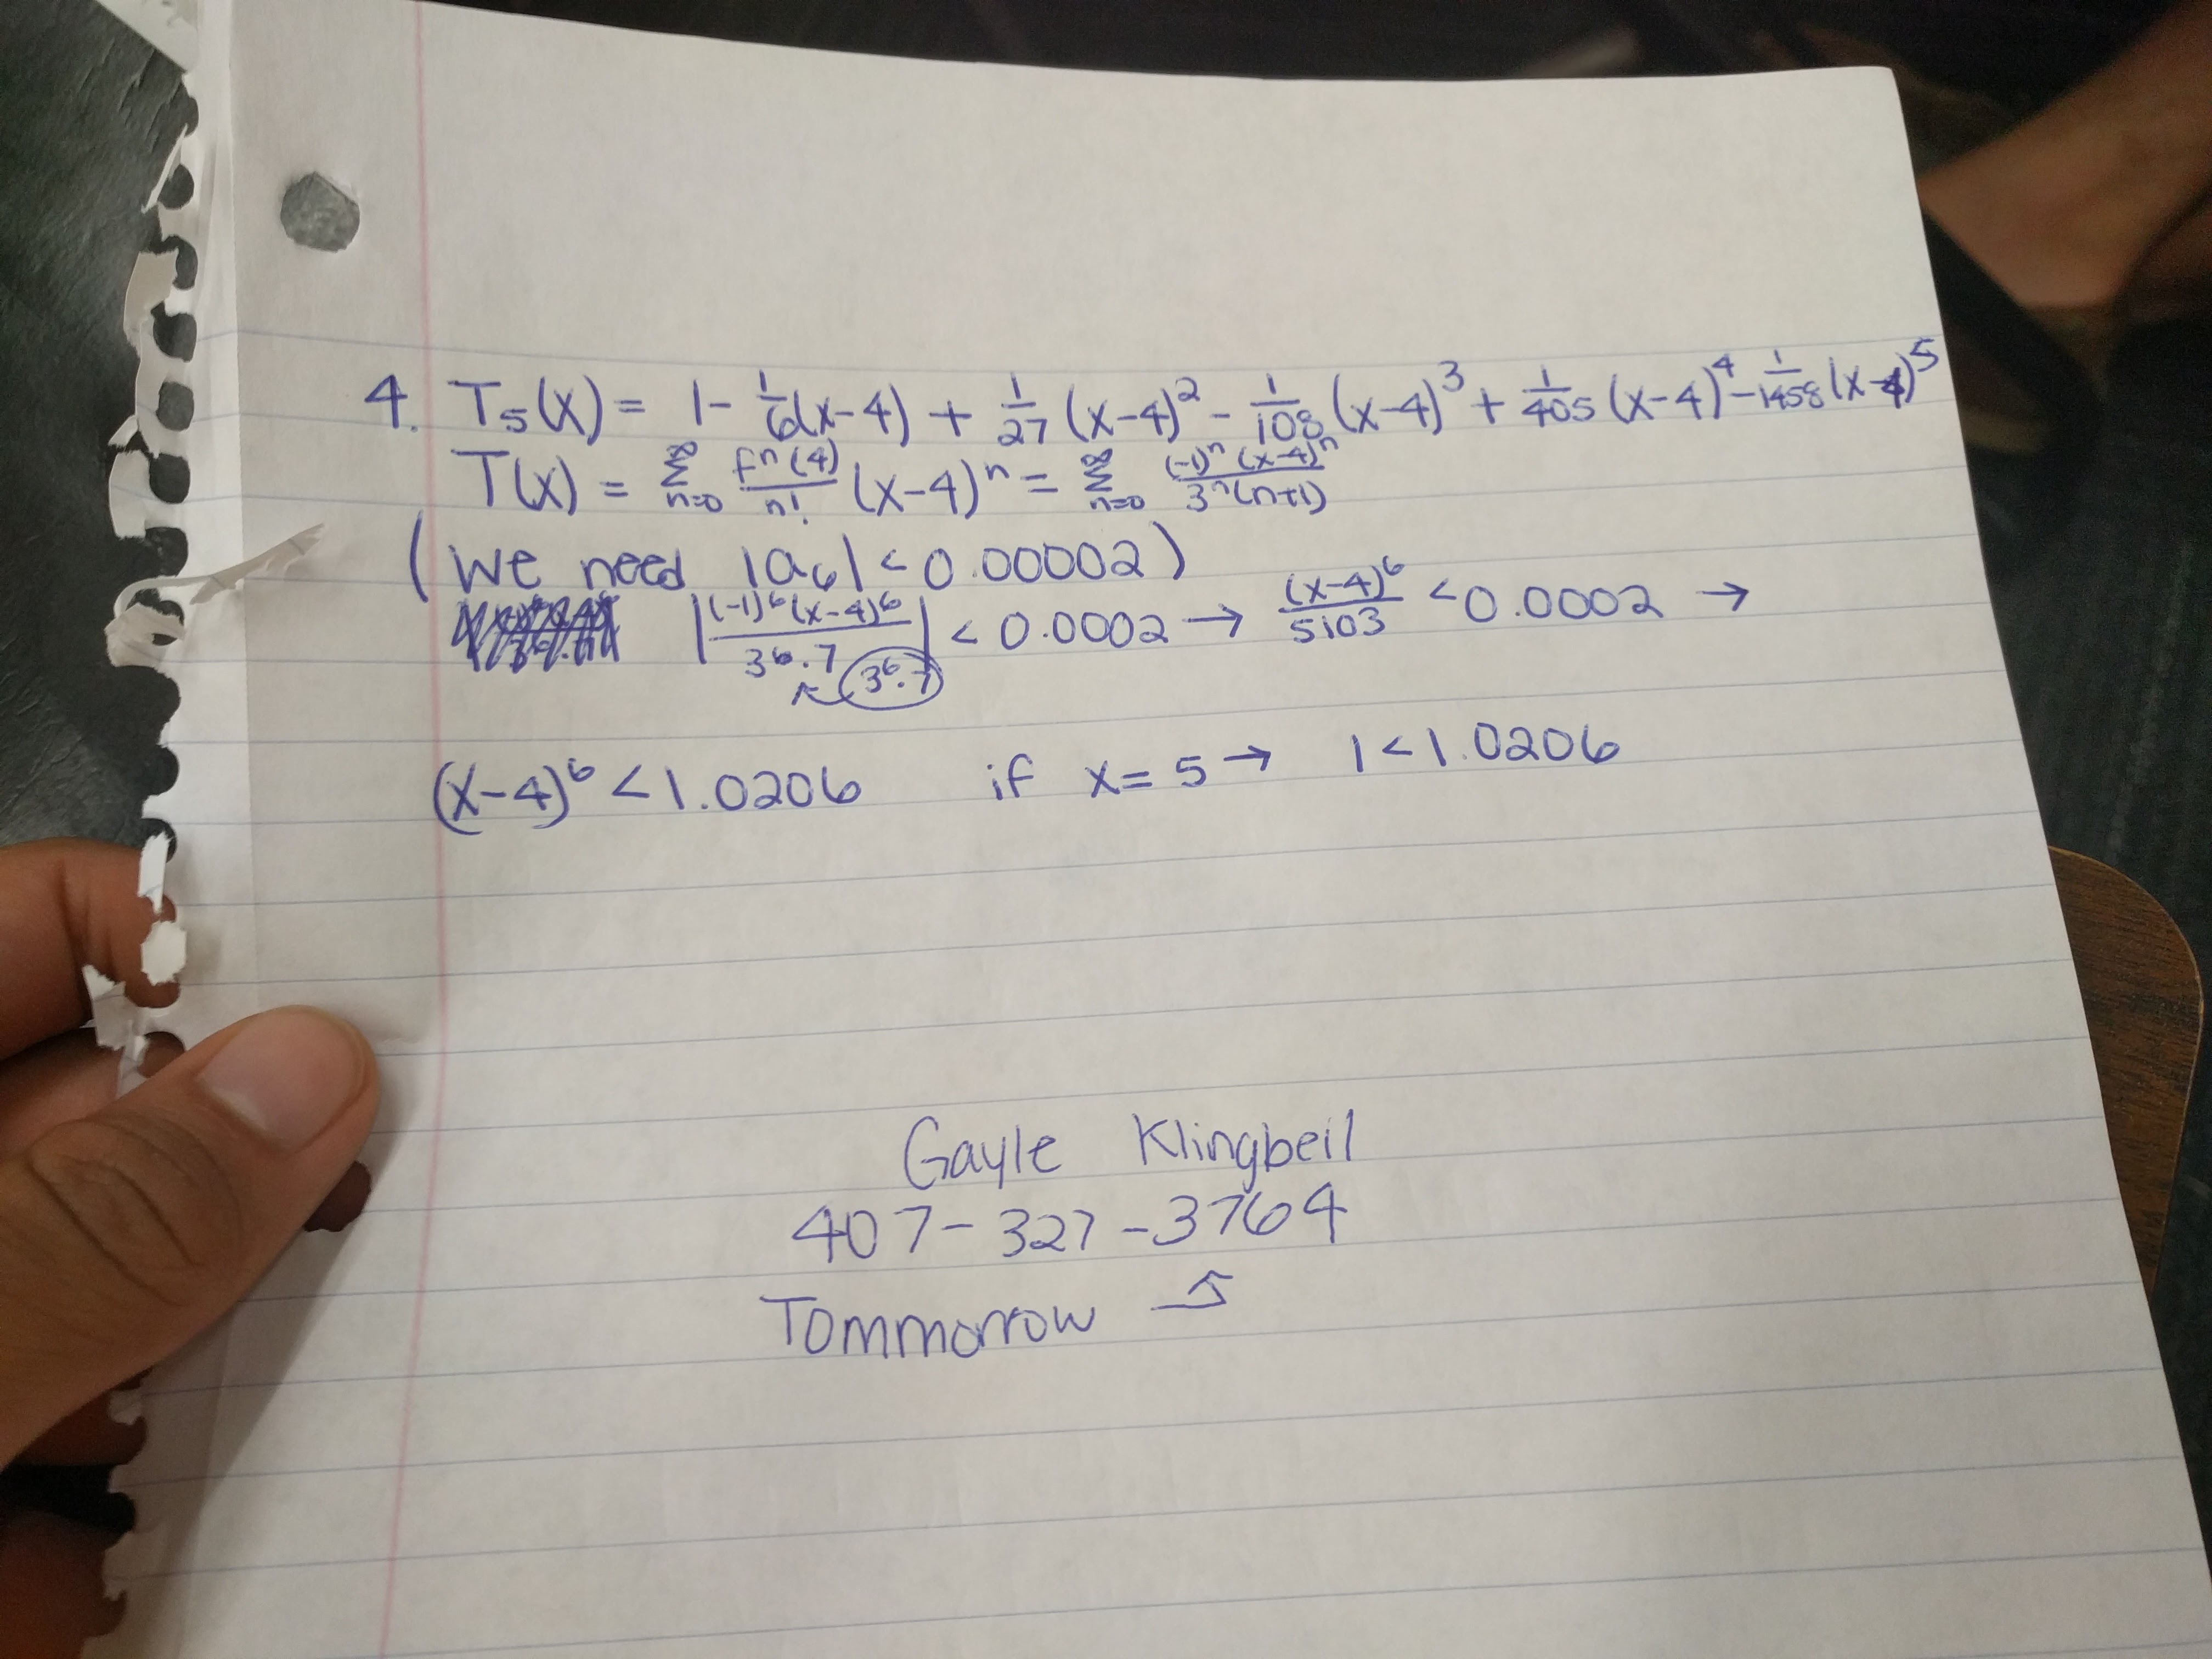 4. T₅(x) = 1 - 1/6(x-4) + 1/27 (x-4)² - 1/108 (x-4)³ + 1/405 (x-4)⁴ - 1/1458 (x-4)⁵
T(x) = ∞Σn=0 fⁿ(4)/n! (x-4)ⁿ = ∞Σn=0 (-1)ⁿ (x-4)ⁿ/3ⁿ(n+1)
(we need |a₆| < 0.00002)
|(-1)⁶(x-4)⁶/3⁶·7| < 0.0002 → (x-4)⁶/5103 < 0.0002 →
3⁶·7
(x-4)⁶ < 1.0206 if x = 5 → 1 < 1.0206
Gayle Klingbeil
407-327-3764
Tommorrow